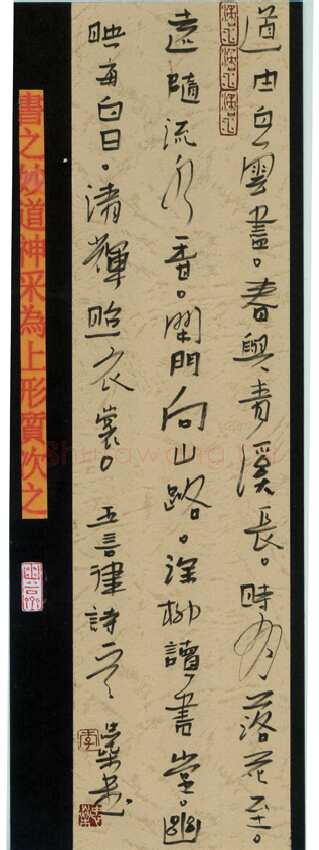 道由白雲盡。春與青溪長。時有落花至。
遠隨流水香。閑門向山路。深柳讀書堂。幽
映每白日。清輝照衣裳。五言律詩一章
書之妙道神采為上形質次之